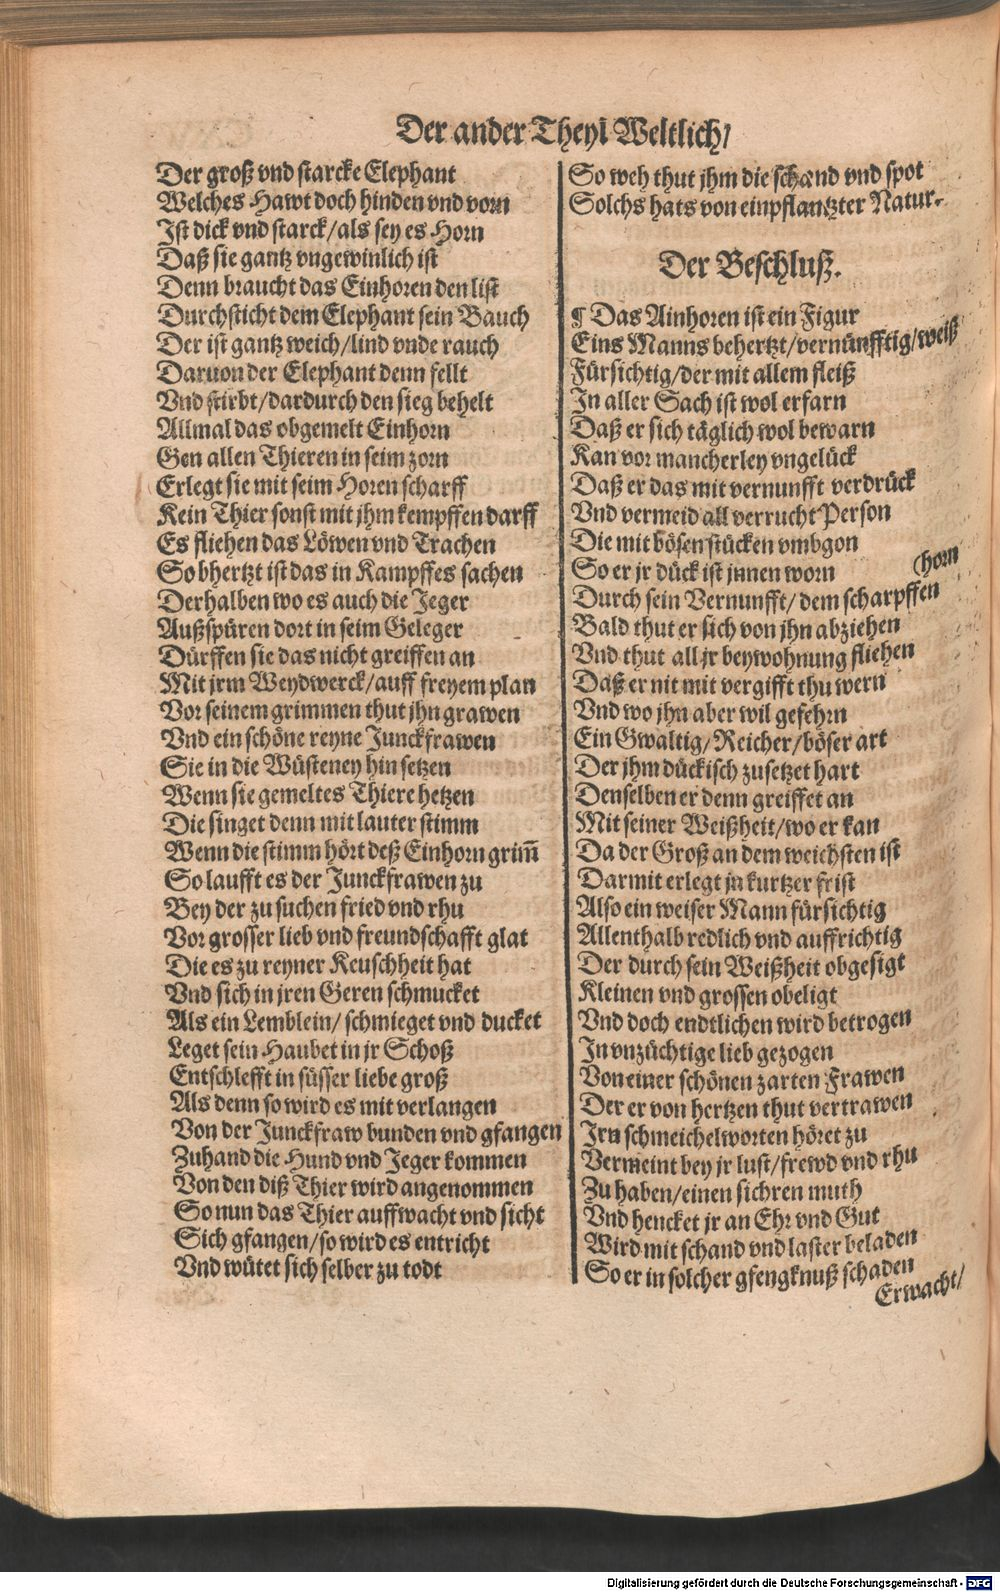 Der ander Theyl Weltlich/
Der groß vnd starcke Elephant
Welches Hawt doch hinden vnd vorn
Ist dick vnd starck/als sey es Horn
Daß sie gantz vngewinlich ist
Denn braucht das Einhoren den list
Durchsticht dem Elephant sein Bauch
Der ist gantz weich/lind vnde rauch
Daruon der Elephant denn fellt
Vnd stirbt/dardurch den sieg behelt
Allmal das obgemelt Einhorn
Gen allen Thieren in seim zorn
Erlegt sie mit seim Horen scharff
Kein Thier sonst mit jhm kempffen darff
Es fliehen das Löwen vnd Trachen
So bhertzt ist das in Kampffes sachen
Derhalben wo es auch die Jeger
Außspüren dort in seim Geleger
Dürffen sie das nicht greiffen an
Mit jrm Weydwerck/auff freyem plan
Vor seinem grimmen thut jhn grawen
Vnd ein schöne reyne Junckfrawen
Sie in die Wüsteney hin setzen
Wenn sie gemeltes Thiere hetzen
Die singet denn mit lauter stimm
Wenn die stimm hört deß Einhorn grim̃
So laufft es der Junckfrawen zu
Bey der zu suchen fried vnd rhu
Vor grosser lieb vnd freundschafft glat
Die es zu reyner Keuschheit hat
Vnd sich in jren Geren schmucket
Als ein Lemblein/ schmieget vnd ducket
Leget sein Haubet in jr Schoß
Entschlefft in süsser liebe groß
Als denn so wird es mit verlangen
Von der Junckfraw bunden vnd gfangen
Zuhand die Hund vnd Jeger kommen
Von den diß Thier wird angenommen
So nun das Thier auffwacht vnd sicht
Sich gfangen/so wird es entricht
Vnd wütet sich selber zu todt
So weh thut jhm die schand vnd spot
Solchs hats von einpflantzter Natur.
Der Beschluß.
¶ Das Ainhoren ist ein Figur
Eins Manns behertzt/vernünfftig/weiß
Fürsichtig/der mit allem fleiß
In aller Sach ist wol erfarn
Daß er sich täglich wol bewarn
Kan vor mancherley vngelück
Daß er das mit vernunfft verdrück
Vnd vermeid all verrucht Person
Die mit bösen stücken vmbgon
So er jr dück ist jnnen worn
(horn
Durch sein Vernunfft/ dem scharpffen
Bald thut er sich von jhn abziehen
Vnd thut all jr beywohnung fliehen
Daß er nit mit vergifft thu wern
Vnd wo jhn aber wil gefehrn
Ein Gwaltig/Reicher/böser art
Der jhm dückisch zusetzet hart
Denselben er denn greiffet an
Mit seiner Weißheit/wo er kan
Da der Groß an dem weichsten ist
Darmit erlegt jn kurtzer frist
Also ein weiser Mann fürsichtig
Allenthalb redlich vnd auffrichtig
Der durch sein Weißheit obgesigt
Kleinen vnd grossen obeligt
Vnd doch endtlichen wird betrogen
In vnzüchtige lieb gezogen
Von einer schönen zarten Frawen
Der er von hertzen thut vertrawen
Irn schmeichelworten höret zu
Vermeint bey jr lust/frewd vnd rhu
Zu haben/einen sichren muth
Vnd hencket jr an Ehr vnd Gut
Wird mit schand vnd laster beladen
So er in solcher gfengknuß schaden
Erwacht/
Digitalisierung gefördert durch die Deutsche Forschungsgemeinschaft - DFG